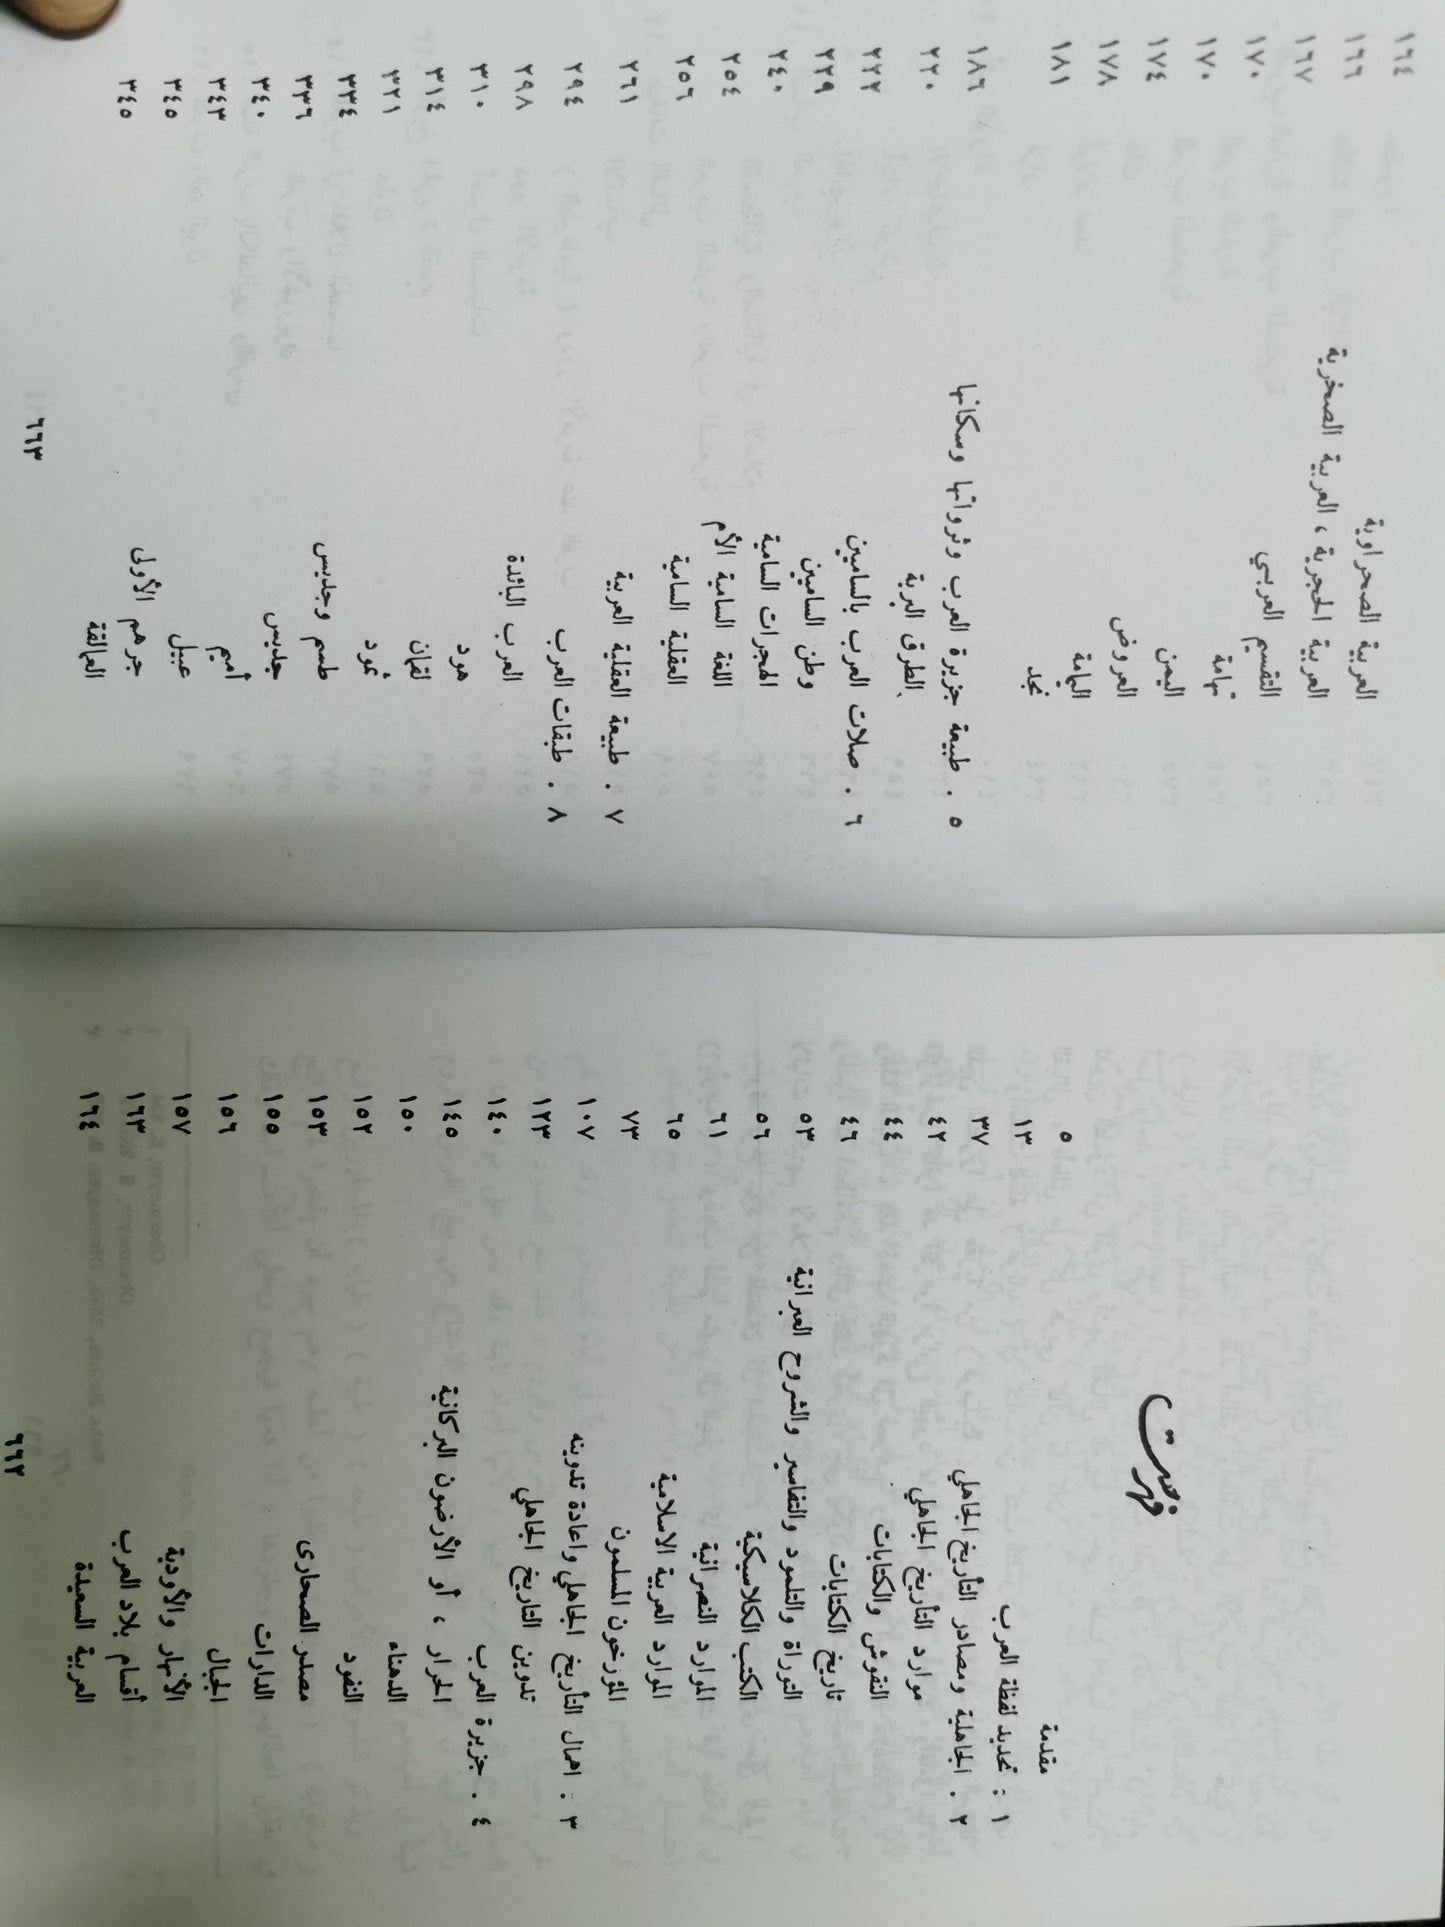 فهرست
مقدمة ٥
١ : تحديد لفظة العرب ١٣
٢ . الجاهلية ومصادر التأريخ الجاهلي ٣٧
موارد التأريخ الجاهلي ٤٢
النقوش والكتابات ٤٤
تاريخ الكتابات ٤٦
التوراة والتلمود والتفاسير والشروح العبرانية ٥٣
الكتب الكلاسيكية ٥٦
الموارد النصرانية ٦١
الموارد العربية الاسلامية ٦٥
المؤرخون المسلمون ٧٣
٣ . اهمال التأريخ الجاهلي واعادة تدوينه ١٠٧
تدوين التاريخ الجاهلي ١٢٣
٤ . جزيرة العرب ١٤٠
الحرار ، أو الأرضون البركانية ١٤٥
الدهناء ١٥٠
النفود ١٥٢
مصدر الصحارى ١٥٣
الدارات ١٥٥
الجبال ١٥٦
الأنهار والأودية ١٥٧
أقسام بلاد العرب ١٦٣
العربية السعيدة ١٦٤
٦٦٢
العربية الصحراوية ١٦٤
العربية الحجرية ، العربية الصخرية ١٦٦
التقسيم العربي ١٦٧
تهامة ١٧٠
اليمن ١٧٠
العروض ١٧٤
اليمامة ١٧٨
نجد ١٨١
٥ . طبيعة جزيرة العرب وثرواتها وسكانها ١٨٦
الطرق البرية ٢٢٠
٦ . صلات العرب بالساميين ٢٢٢
وطن الساميين ٢٢٩
الهجرات السامية ٢٤٠
اللغة السامية الأم ٢٥٤
العقلية السامية ٢٥٦
٧ . طبيعة العقلية العربية ٢٦١
٨ . طبقات العرب ٢٩٤
العرب البائدة ٢٩٨
هود ٣١٠
لقمان ٣١٤
ثمود ٣٢١
طسم وجديس ٣٣٤
جديس ٣٣٦
أميم ٣٤٠
عبيل ٣٤٣
جرهم الأولى ٣٤٥
العمالقة ٣٤٥
٦٦٣